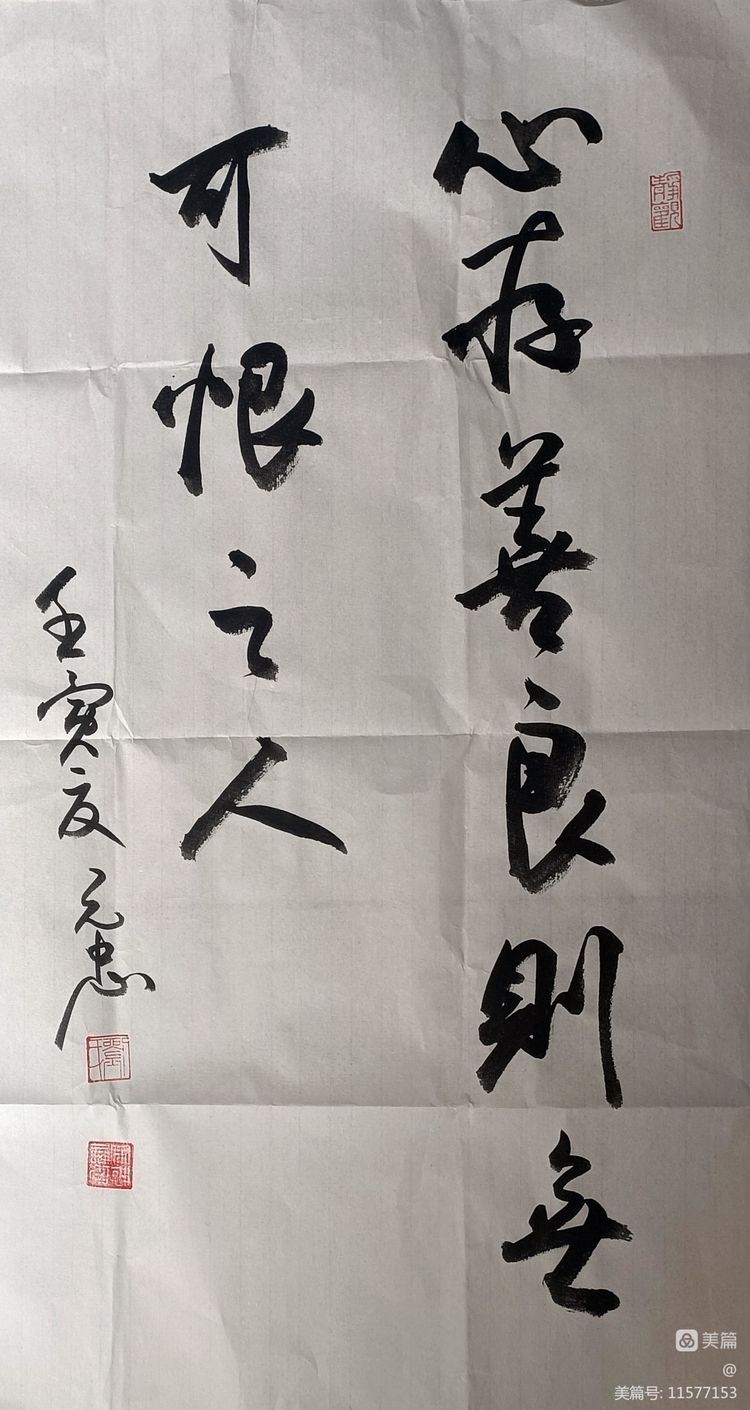 心存善良則無
可恨之人
壬寅夏元忠
靜觀
美篇
@
美篇号: 11577153